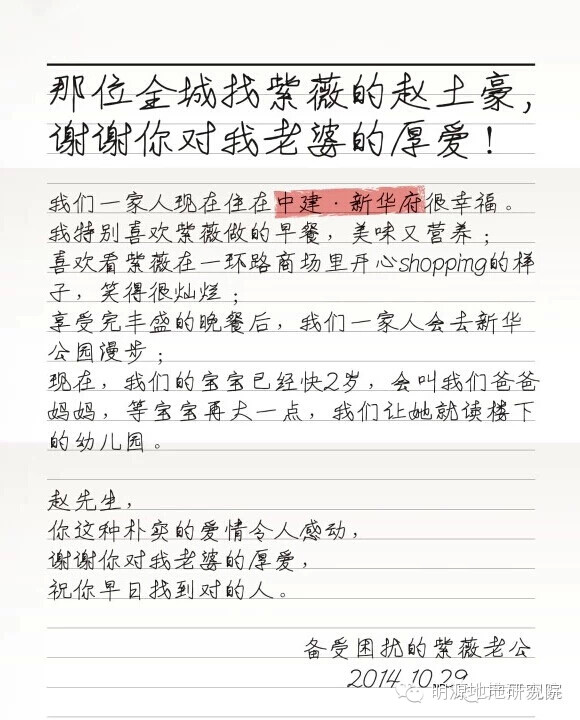 那位全城找紫薇的赵土豪，
谢谢你对我老婆的厚爱！
我们一家人现在住在中建·新华府很幸福。
我特别喜欢紫薇做的早餐，美味又营养；
喜欢看紫薇在一环路商场里开心shopping的样
子，笑得很灿烂；
享受完丰盛的晚餐后，我们一家人会去新华
公园漫步；
现在，我们的宝宝已经快2岁，会叫我们爸爸
妈妈，等宝宝再大一点，我们让她就读楼下
的幼儿园。
赵先生，
你这种朴实的爱情令人感动，
谢谢你对我老婆的厚爱，
祝你早日找到对的人。
备受困扰的紫薇老公
2014.10.29
明源地产研究院